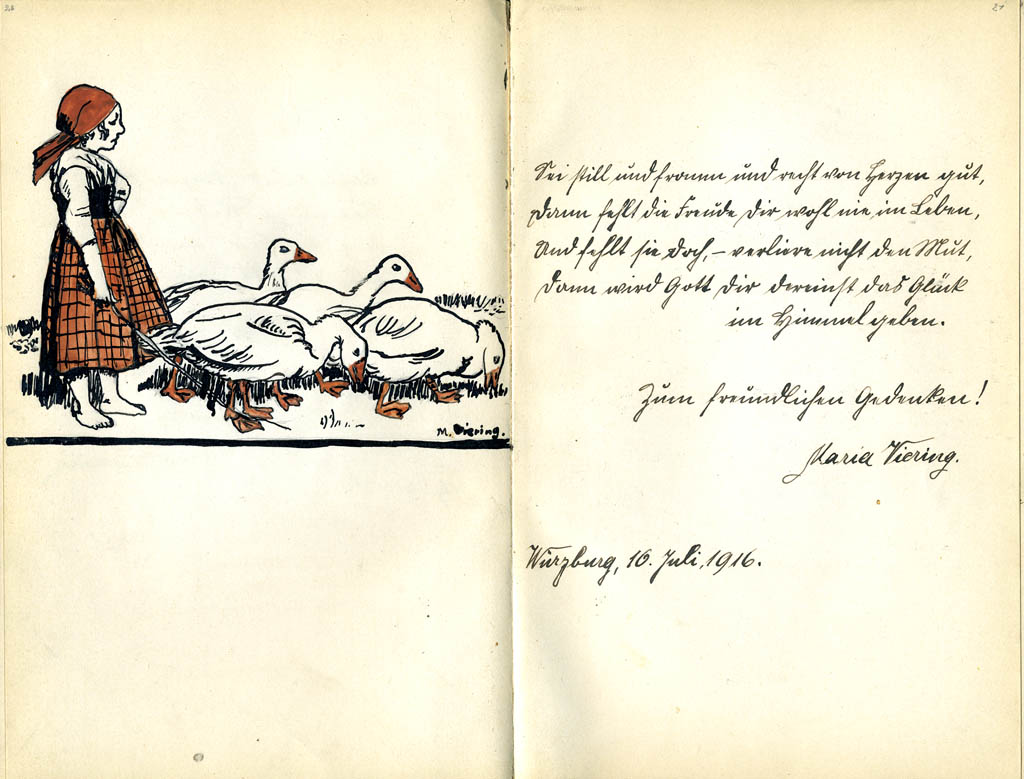 28
M. Viering.
21
Sei still und fromm und recht von Herzen gut,
Dann fehlt die Freude dir wohl nie im Leben,
Und fehlt sie doch, – verliere nicht den Mut,
Dann wird Gott dir dereinst das Glück
im Himmel geben.
Zum freundlichen Gedenken!
Maria Viering.
Würzburg, 10. Juli, 1916.